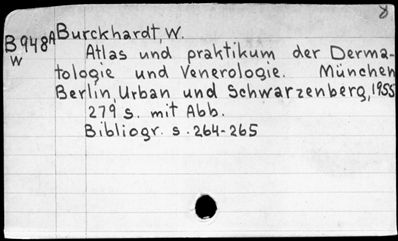 8
B948A Burckhardt, W.
W Atlas und praktikum der Derma-
tologie und Venerologie. München
Berlin, Urban und Schwarzenberg, 1955
279 s. mit Abb.
Bibliogr. s. 264-265